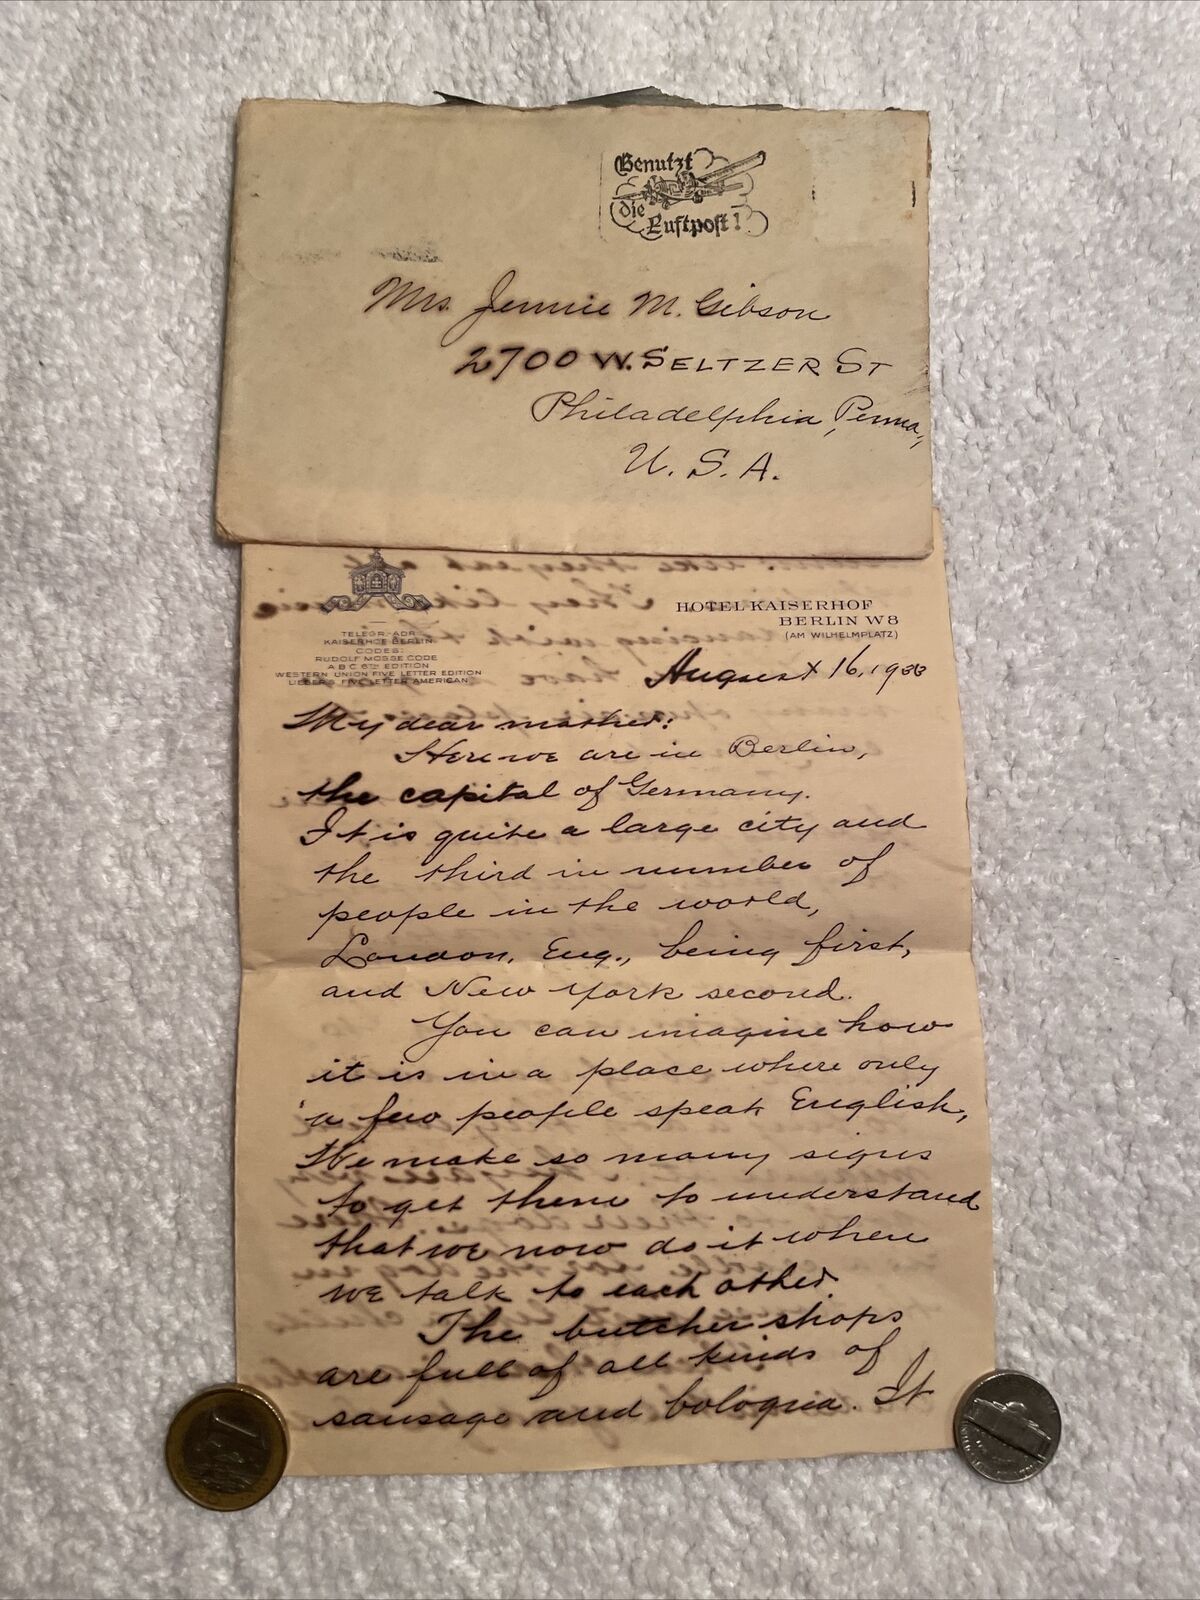 Benutzt
die
Luftpost!
Mrs. Jennie M. Gibson
2700 W. SELTZER ST
Philadelphia, Penna.,
U. S. A.
TELEGR.-ADR.
KAISERHOF BERLIN
CODES:
RUDOLF MOSSE CODE
A B C 6TH EDITION
WESTERN UNION FIVE LETTER EDITION
LIEBER'S FIVE LETTER AMERICAN
HOTEL KAISERHOF
BERLIN W8
(AM WILHELMPLATZ)
August 16, 1933
My dear mother:
Here we are in Berlin,
the capital of Germany.
It is quite a large city and
the third in number of
people in the world,
London, Eng., being first,
and New York second.
You can imagine how
it is in a place where only
a few people speak English,
We make so many signs
to get them to understand
that we now do it when
we talk to each other.
The butcher shops
are full of all kinds of
sausage and bologna. It